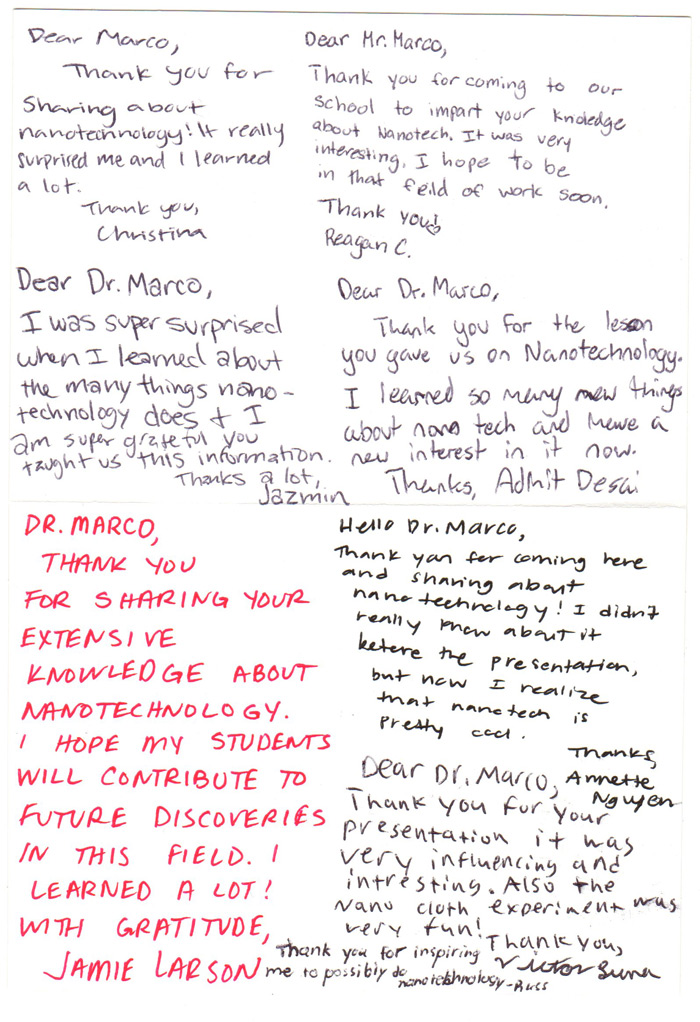 Dear Marco,
Thank you for
Sharing about
nanotechnology! It really
surprised me and I learned
a lot.
Thank you,
Christina
Dear Mr. Marco,
Thank you for coming to our
school to impart your knoledge
about Nanotech. It was very
interesting, I hope to be
in that feild of work soon.
Thank you!
Reagan C.
Dear Dr. Marco,
I was super surprised
when I learned about
the many things nano-
technology does + I
am super grateful you
taught us this information.
Thanks a lot,
Jazmin
Dear Dr. Marco,
Thank you for the lesson
you gave us on Nanotechnology.
I learned so many new things
about nano tech and have a
new interest in it now.
Thanks, Adhit Desai
DR. MARCO,
THANK YOU
FOR SHARING YOUR
EXTENSIVE
KNOWLEDGE ABOUT
NANOTECHNOLOGY.
I HOPE MY STUDENTS
WILL CONTRIBUTE TO
FUTURE DISCOVERIES
IN THIS FIELD. I
LEARNED A LOT!
WITH GRATITUDE,
JAMIE LARSON
Hello Dr. Marco,
Thank you for coming here
and sharing about
nanotechnology! I didn't
really know about it
before the presentation,
but now I realize
that nanotech is
pretty cool.
Thanks,
Annette
Nguyen
Dear Dr. Marco,
Thank you for your
presentation it was
very influencing and
intresting. Also the
Nano cloth experiment was
very fun!
Thank you,
Victor
Thank you for inspiring
me to possibly do
nanotechnology-Russ